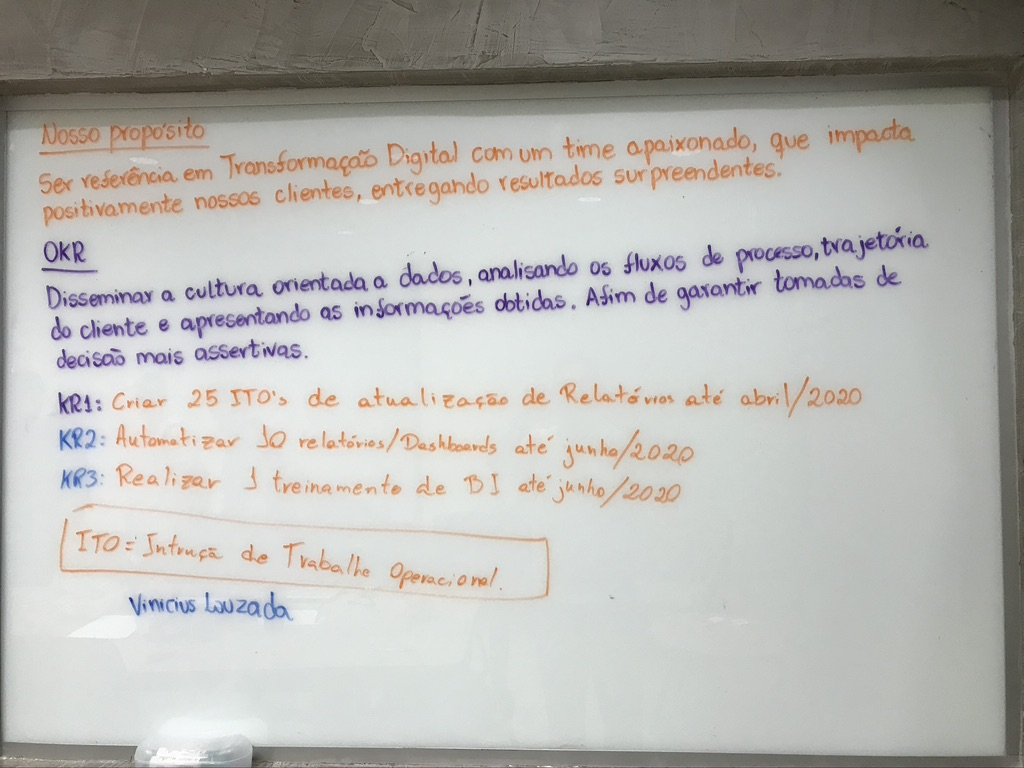 Nosso propósito
Ser referência em Transformação Digital com um time apaixonado, que impacta
positivamente nossos clientes, entregando resultados surpreendentes.
OKR
Disseminar a cultura orientada a dados, analisando os fluxos de processo, trajetória
do cliente e apresentando as informações obtidas. Afim de garantir tomadas de
decisão mais assertivas.
KR1: Criar 25 ITO's de atualização de Relatórios até abril/2020
KR2: Automatizar 10 relatórios/Dashboards até junho/2020
KR3: Realizar 1 treinamento de BI até junho/2020
ITO = Intrução de Trabalho Operacional.
Vinicius Louzada